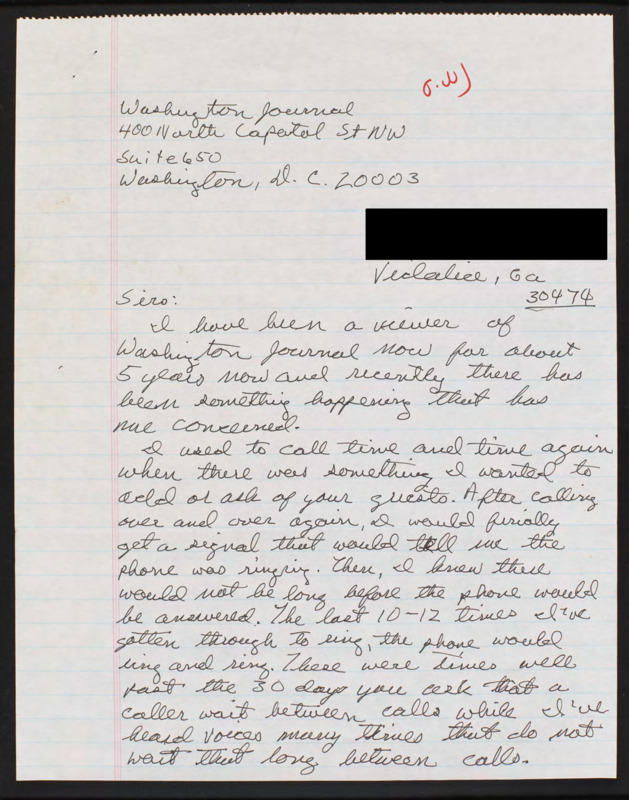 o.w)
Washington Journal
400 North Capatol St NW
Suite 650
Washington, D. C. 20003
Vidalia, Ga
30474
Sirs:
I have been a viewer of
Washington Journal now for about
5 years now and recently there has
been something happening that has
me concerned.
I used to call time and time again
when there was something I wanted to
add or ask of your guests. After calling
over and over again, I would finally
get a signal that would tell me the
phone was ringing. Then, I knew there
would not be long before the phone would
be answered. The last 10-12 times I've
gotten through to ring, the phone would
ring and ring. These were times well
past the 30 days you ask that a
caller wait between calls while I've
heard voices many times that do not
wait that long between calls.